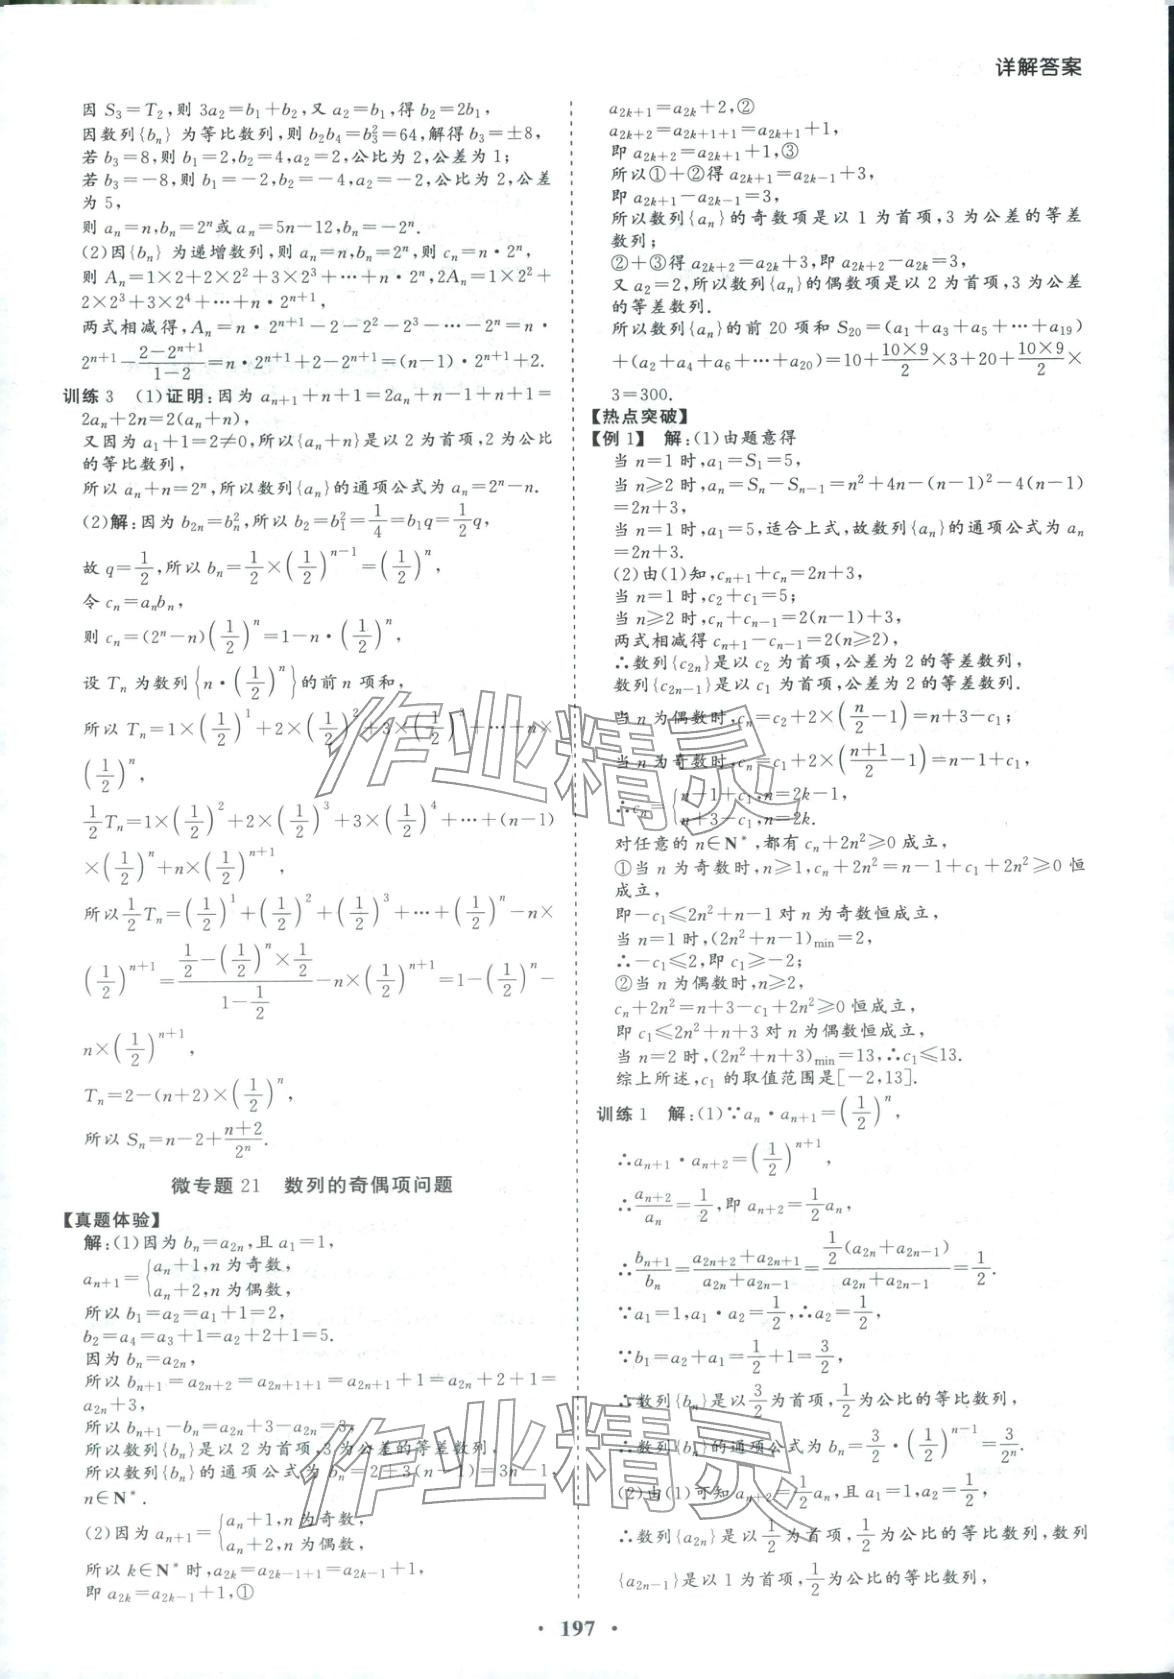 详解答案
因 S₃=T₂,则 3a₂=b₁+b₂,又 a₂=b₁,得 b₂=2b₁,
因数列{bₙ}为等比数列,则 b₂b₄=b₃²=64,解得 b₃=±8,
若 b₃=8,则 b₁=2,b₂=4,a₂=2,公比为 2,公差为 1;
若 b₃=-8,则 b₁=-2,b₂=-4,a₂=-2,公比为 2,公差
为 5,
则 aₙ=n,bₙ=2ⁿ或 aₙ=5n-12,bₙ=-2ⁿ.
(2)因{bₙ}为递增数列,则 aₙ=n,bₙ=2ⁿ,则 cₙ=n·2ⁿ,
则 Aₙ=1×2+2×2²+3×2³+…+n·2ⁿ,2Aₙ=1×2²+
2×2³+3×2⁴+…+n·2ⁿ⁺¹,
两式相减得,Aₙ=n·2ⁿ⁺¹-2-2²-2³-…-2ⁿ=n·
2ⁿ⁺¹-(2-2ⁿ⁺¹)/(1-2)=n·2ⁿ⁺¹+2-2ⁿ⁺¹=(n-1)·2ⁿ⁺¹+2.
训练 3 (1)证明:因为 aₙ₊₁+n+1=2aₙ+n-1+n+1=
2aₙ+2n=2(aₙ+n),
又因为 a₁+1=2≠0,所以{aₙ+n}是以 2 为首项,2 为公比
的等比数列,
所以 aₙ+n=2ⁿ,所以数列{aₙ}的通项公式为 aₙ=2ⁿ-n.
(2)解:因为 b₂ₙ=bₙ²,所以 b₂=b₁²=1/4=b₁q=1/2 q,
故 q=1/2,所以 bₙ=1/2×(1/2)ⁿ⁻¹=(1/2)ⁿ,
令 cₙ=aₙbₙ,
则 cₙ=(2ⁿ-n)(1/2)ⁿ=1-n·(1/2)ⁿ,
设 Tₙ 为数列{n·(1/2)ⁿ}的前 n 项和,
所以 Tₙ=1×(1/2)¹+2×(1/2)²+3×(1/2)³+…+n×
(1/2)ⁿ,
1/2 Tₙ=1×(1/2)²+2×(1/2)³+3×(1/2)⁴+…+(n-1)
×(1/2)ⁿ+n×(1/2)ⁿ⁺¹,
所以 1/2 Tₙ=(1/2)¹+(1/2)²+(1/2)³+…+(1/2)ⁿ-n×
(1/2)ⁿ⁺¹=(1/2-(1/2)ⁿ×1/2)/(1-1/2)-n×(1/2)ⁿ⁺¹=1-(1/2)ⁿ-
n×(1/2)ⁿ⁺¹,
Tₙ=2-(n+2)×(1/2)ⁿ,
所以 Sₙ=n-2+(n+2)/2ⁿ.
微专题 21 数列的奇偶项问题
【真题体验】
解:(1)因为 bₙ=a₂ₙ,且 a₁=1,
aₙ₊₁={aₙ+1,n 为奇数,
aₙ+2,n 为偶数,
所以 b₁=a₂=a₁+1=2,
b₂=a₄=a₃+1=a₂+2+1=5.
因为 bₙ=a₂ₙ,
所以 bₙ₊₁=a₂ₙ₊₂=a₂ₙ₊₁₊₁=a₂ₙ₊₁+1=a₂ₙ+2+1=
a₂ₙ+3,
所以 bₙ₊₁-bₙ=a₂ₙ+3-a₂ₙ=3,
所以数列{bₙ}是以 2 为首项,3 为公差的等差数列,
所以数列{bₙ}的通项公式为 bₙ=2+3(n-1)=3n-1,
n∈N*.
(2)因为 aₙ₊₁={aₙ+1,n 为奇数,
aₙ+2,n 为偶数,
所以 k∈N*时,a₂ₖ=a₂ₖ₋₁₊₁=a₂ₖ₋₁+1,
即 a₂ₖ=a₂ₖ₋₁+1,①
a₂ₖ₊₁=a₂ₖ+2,②
a₂ₖ₊₂=a₂ₖ₊₁₊₁=a₂ₖ₊₁+1,
即 a₂ₖ₊₂=a₂ₖ₊₁+1,③
所以①+②得 a₂ₖ₊₁=a₂ₖ₋₁+3,
即 a₂ₖ₊₁-a₂ₖ₋₁=3,
所以数列{aₙ}的奇数项是以 1 为首项,3 为公差的等差
数列;
②+③得 a₂ₖ₊₂=a₂ₖ+3,即 a₂ₖ₊₂-a₂ₖ=3,
又 a₂=2,所以数列{aₙ}的偶数项是以 2 为首项,3 为公差
的等差数列.
所以数列{aₙ}的前 20 项和 S₂₀=(a₁+a₃+a₅+…+a₁₉)
+(a₂+a₄+a₆+…+a₂₀)=10+(10×9)/2×3+20+(10×9)/2×
3=300.
【热点突破】
【例 1】 解:(1)由题意得
当 n=1 时,a₁=S₁=5,
当 n≥2 时,aₙ=Sₙ-Sₙ₋₁=n²+4n-(n-1)²-4(n-1)
=2n+3,
当 n=1 时,a₁=5,适合上式,故数列{aₙ}的通项公式为 aₙ
=2n+3.
(2)由(1)知,cₙ₊₁+cₙ=2n+3,
当 n=1 时,c₂+c₁=5;
当 n≥2 时,cₙ+cₙ₋₁=2(n-1)+3,
两式相减得 cₙ₊₁-cₙ₋₁=2(n≥2),
∴数列{c₂ₙ}是以 c₂ 为首项,公差为 2 的等差数列,
数列{c₂ₙ₋₁}是以 c₁ 为首项,公差为 2 的等差数列.
当 n 为偶数时,cₙ=c₂+2×(n/2-1)=n+3-c₁;
当 n 为奇数时,cₙ=c₁+2×((n+1)/2-1)=n-1+c₁,
∴cₙ={n-1+c₁,n=2k-1,
n+3-c₁,n=2k.
对任意的 n∈N*,都有 cₙ+2n²≥0 成立,
①当 n 为奇数时,n≥1,cₙ+2n²=n-1+c₁+2n²≥0 恒
成立,
即-c₁≤2n²+n-1 对 n 为奇数恒成立,
当 n=1 时,(2n²+n-1)min=2,
∴-c₁≤2,即 c₁≥-2;
②当 n 为偶数时,n≥2,
cₙ+2n²=n+3-c₁+2n²≥0 恒成立,
即 c₁≤2n²+n+3 对 n 为偶数恒成立,
当 n=2 时,(2n²+n+3)min=13,∴c₁≤13.
综上所述,c₁ 的取值范围是[-2,13].
训练 1 解:(1)∵aₙ·aₙ₊₁=(1/2)ⁿ,
∴aₙ₊₁·aₙ₊₂=(1/2)ⁿ⁺¹,
∴aₙ₊₂/aₙ=1/2,即 aₙ₊₂=1/2 aₙ,
∴bₙ₊₁/bₙ=(a₂ₙ₊₂+a₂ₙ₊₁)/(a₂ₙ+a₂ₙ₋₁)=(1/2(a₂ₙ+a₂ₙ₋₁))/(a₂ₙ+a₂ₙ₋₁)=1/2.
∵a₁=1,a₁·a₂=1/2,∴a₂=1/2,
∵b₁=a₂+a₁=1/2+1=3/2,
∴数列{bₙ}是以 3/2 为首项,1/2 为公比的等比数列,
∴数列{bₙ}的通项公式为 bₙ=3/2·(1/2)ⁿ⁻¹=3/2ⁿ.
(2)由(1)可知 aₙ₊₂=1/2 aₙ,且 a₁=1,a₂=1/2,
∴数列{a₂ₙ}是以 1/2 为首项,1/2 为公比的等比数列,数列
{a₂ₙ₋₁}是以 1 为首项,1/2 为公比的等比数列,
· 197 ·
作业精灵
作业精灵